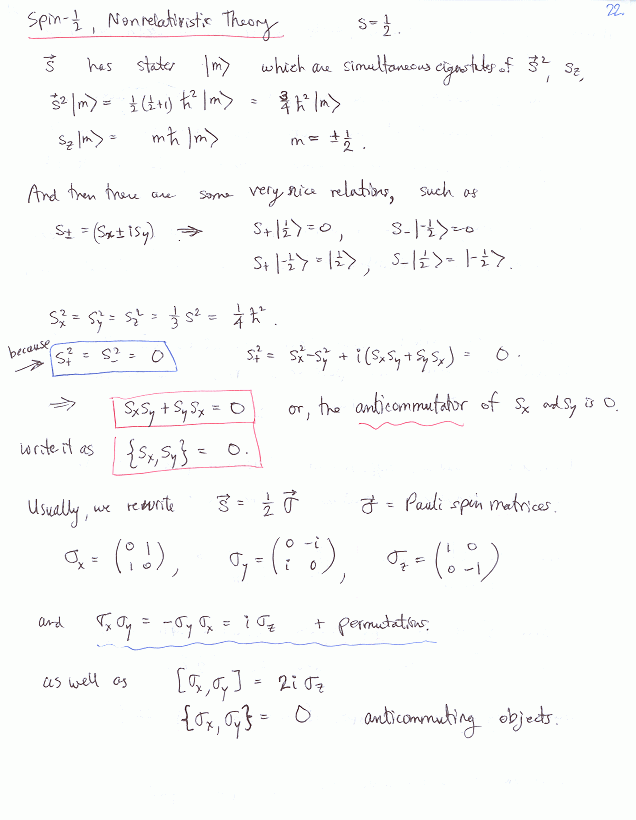 22.
Spin-½, Nonrelativistic Theory    S = ½.
S⃗ has states |m⟩ which are simultaneous eigenstates of S⃗², S_z,
S⃗²|m⟩ = ½(½+1)ħ²|m⟩ = ¾ħ²|m⟩
S_z|m⟩ = mħ|m⟩    m = ±½.
And then there are some very nice relations, such as
S± = (Sx ± iSy) ⇒ S₊|½⟩ = 0, S₋|-½⟩ = 0
S₊|-½⟩ = |½⟩, S₋|½⟩ = |-½⟩.
Sx² = Sy² = Sz² = ⅓ S² = ¼ħ².
because → S₊² = S₋² = 0    S₊² = Sx² - Sy² + i(SxSy + SySx) = 0.
⇒ SxSy + SySx = 0    or, the anticommutator of Sx and Sy is 0.
write it as {Sx, Sy} = 0.
Usually, we rewrite S⃗ = ½ σ⃗    σ⃗ = Pauli spin matrices.
σx = (0 1; 1 0), σy = (0 -i; i 0), σz = (1 0; 0 -1)
and σxσy = -σyσx = iσz + permutations.
as well as [σx, σy] = 2iσz
{σx, σy} = 0    anticommuting objects.